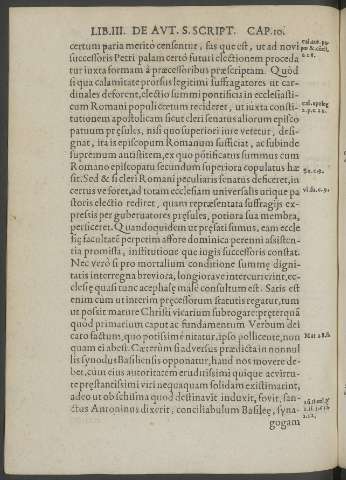 LIB. III. DE AVT. S. SCRIPT. CAP. 10.
certum paria meritò censentur, fas que est, ut ad novi
successoris Petri palam certò futuri electionem proceda
tur iuxta formam à præcessoribus præscriptam. Quòd
si qua calamitate prorsus legitimi suffragatores ut car-
dinales deforent, electio summi pontificis in ecclesiasti-
cum Romani populi cœtum recideret, ut iuxta consti-
tutionem apostolicam sicut cleri senatus aliorum episco
patuum pręsules, nisi quo superiori iure vetetur, desi-
gnat, ita is episcopum Romanum sufficiat, ac subinde
supremum antistitem, ex quo pōtificatus summus cum
Romano episcopatu secundum superiora copulatus hæ
sit. Sed & si cleri Romani peculiaris senatus deficeret, in
certus ve foret, ad totam ecclesiam universalis utique pa
storis electio rediret, quam repræsentata suffragijs ex-
pressis per gubernatores pręsules, potiora sua membra,
perficeret. Quandoquidem ut pręfati sumus, eam eccle
się facultatē perpetim affore dominica perenni assisten-
tia promissa, institutione que iugis successoris constat.
Nec verò si pro mortalium conditione summę digni-
tatis interregna breviora, longiorave intercurrerint, ec-
clesię quasi tunc acephalę malè consultum est. Satis est
enim cum ut interim pręcessorum statutis regatur, tum
ut possit mature Christi vicarium subrogare: pręterquā
quòd primarium caput ac fundamentum Verbum dei
caro factum, quo potissimè nitatur, ipso pollicente, nun
quam ei abest. Cæterùm si adversus prædicta in nonnul
lis synodus Basilensis opponatur, haud nos movere de-
bet, cum eius autoritatem eruditissimi quique ac virtu-
te pręstantissimi viri nequaquam solidam existimarint,
adeo ut ob schisma quod destinavit induxit, fovit, san-
ctus Antoninus dixerit, conciliabulum Basileę, syna-
gogam